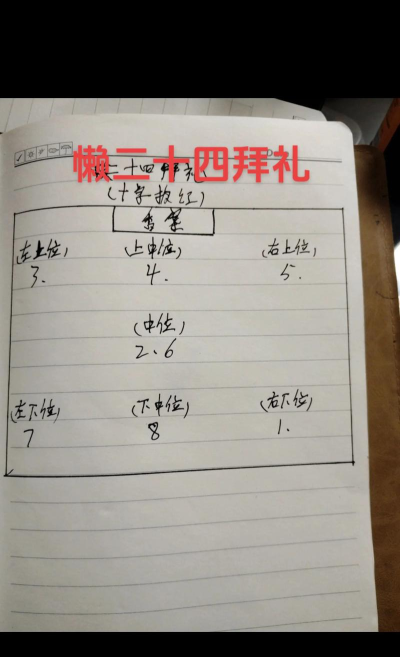 懒二十四拜礼
懒二十四拜礼
(十字披红)
香案
(左上位) (上中位) (右上位)
3. 4. 5.
(中位)
2.6
(左下位) (下中位) (右下位)
7 8 1.